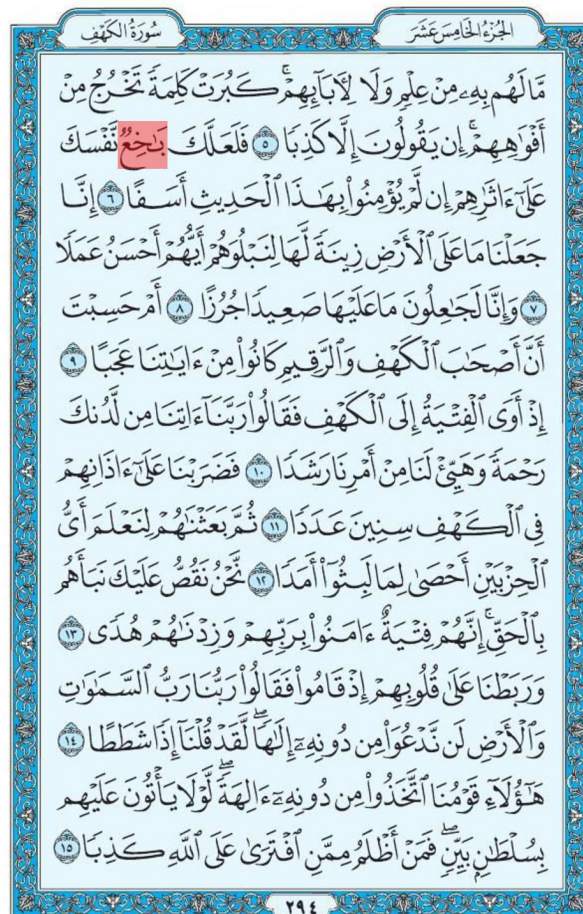 الجُزْءُ الخَامِسَ عَشَرَ سُورَةُ الكَهْفِ
مَّا لَهُم بِهِۦ مِنْ عِلْمٍ وَلَا لِأٓبَآئِهِمْ ۚ كَبُرَتْ كَلِمَةً تَخْرُجُ مِنْ
أَفْوَٰهِهِمْ ۚ إِن يَقُولُونَ إِلَّا كَذِبًا ٥ فَلَعَلَّكَ بَٰخِعٌ نَّفْسَكَ
عَلَىٰٓ ءَاثَٰرِهِمْ إِن لَّمْ يُؤْمِنُوا۟ بِهَٰذَا ٱلْحَدِيثِ أَسَفًا ٦ إِنَّا
جَعَلْنَا مَا عَلَى ٱلْأَرْضِ زِينَةً لَّهَا لِنَبْلُوَهُمْ أَيُّهُمْ أَحْسَنُ عَمَلًا
٧ وَإِنَّا لَجَٰعِلُونَ مَا عَلَيْهَا صَعِيدًا جُرُزًا ٨ أَمْ حَسِبْتَ
أَنَّ أَصْحَٰبَ ٱلْكَهْفِ وَٱلرَّقِيمِ كَانُوا۟ مِنْ ءَايَٰتِنَا عَجَبًا ٩
إِذْ أَوَى ٱلْفِتْيَةُ إِلَى ٱلْكَهْفِ فَقَالُوا۟ رَبَّنَآ ءَاتِنَا مِن لَّدُنكَ
رَحْمَةً وَهَيِّئْ لَنَا مِنْ أَمْرِنَا رَشَدًا ١٠ فَضَرَبْنَا عَلَىٰٓ ءَاذَانِهِمْ
فِى ٱلْكَهْفِ سِنِينَ عَدَدًا ١١ ثُمَّ بَعَثْنَٰهُمْ لِنَعْلَمَ أَىُّ
ٱلْحِزْبَيْنِ أَحْصَىٰ لِمَا لَبِثُوٓا۟ أَمَدًا ١٢ نَّحْنُ نَقُصُّ عَلَيْكَ نَبَأَهُم
بِٱلْحَقِّ ۚ إِنَّهُمْ فِتْيَةٌ ءَامَنُوا۟ بِرَبِّهِمْ وَزِدْنَٰهُمْ هُدًى ١٣
وَرَبَطْنَا عَلَىٰ قُلُوبِهِمْ إِذْ قَامُوا۟ فَقَالُوا۟ رَبُّنَا رَبُّ ٱلسَّمَٰوَٰتِ
وَٱلْأَرْضِ لَن نَّدْعُوَا۟ مِن دُونِهِۦٓ إِلَٰهًا ۖ لَّقَدْ قُلْنَآ إِذًا شَطَطًا ١٤
هَٰٓؤُلَآءِ قَوْمُنَا ٱتَّخَذُوا۟ مِن دُونِهِۦٓ ءَالِهَةً ۖ لَّوْلَا يَأْتُونَ عَلَيْهِم
بِسُلْطَٰنٍۭ بَيِّنٍ ۖ فَمَنْ أَظْلَمُ مِمَّنِ ٱفْتَرَىٰ عَلَى ٱللَّهِ كَذِبًا ١٥
٢٩٤